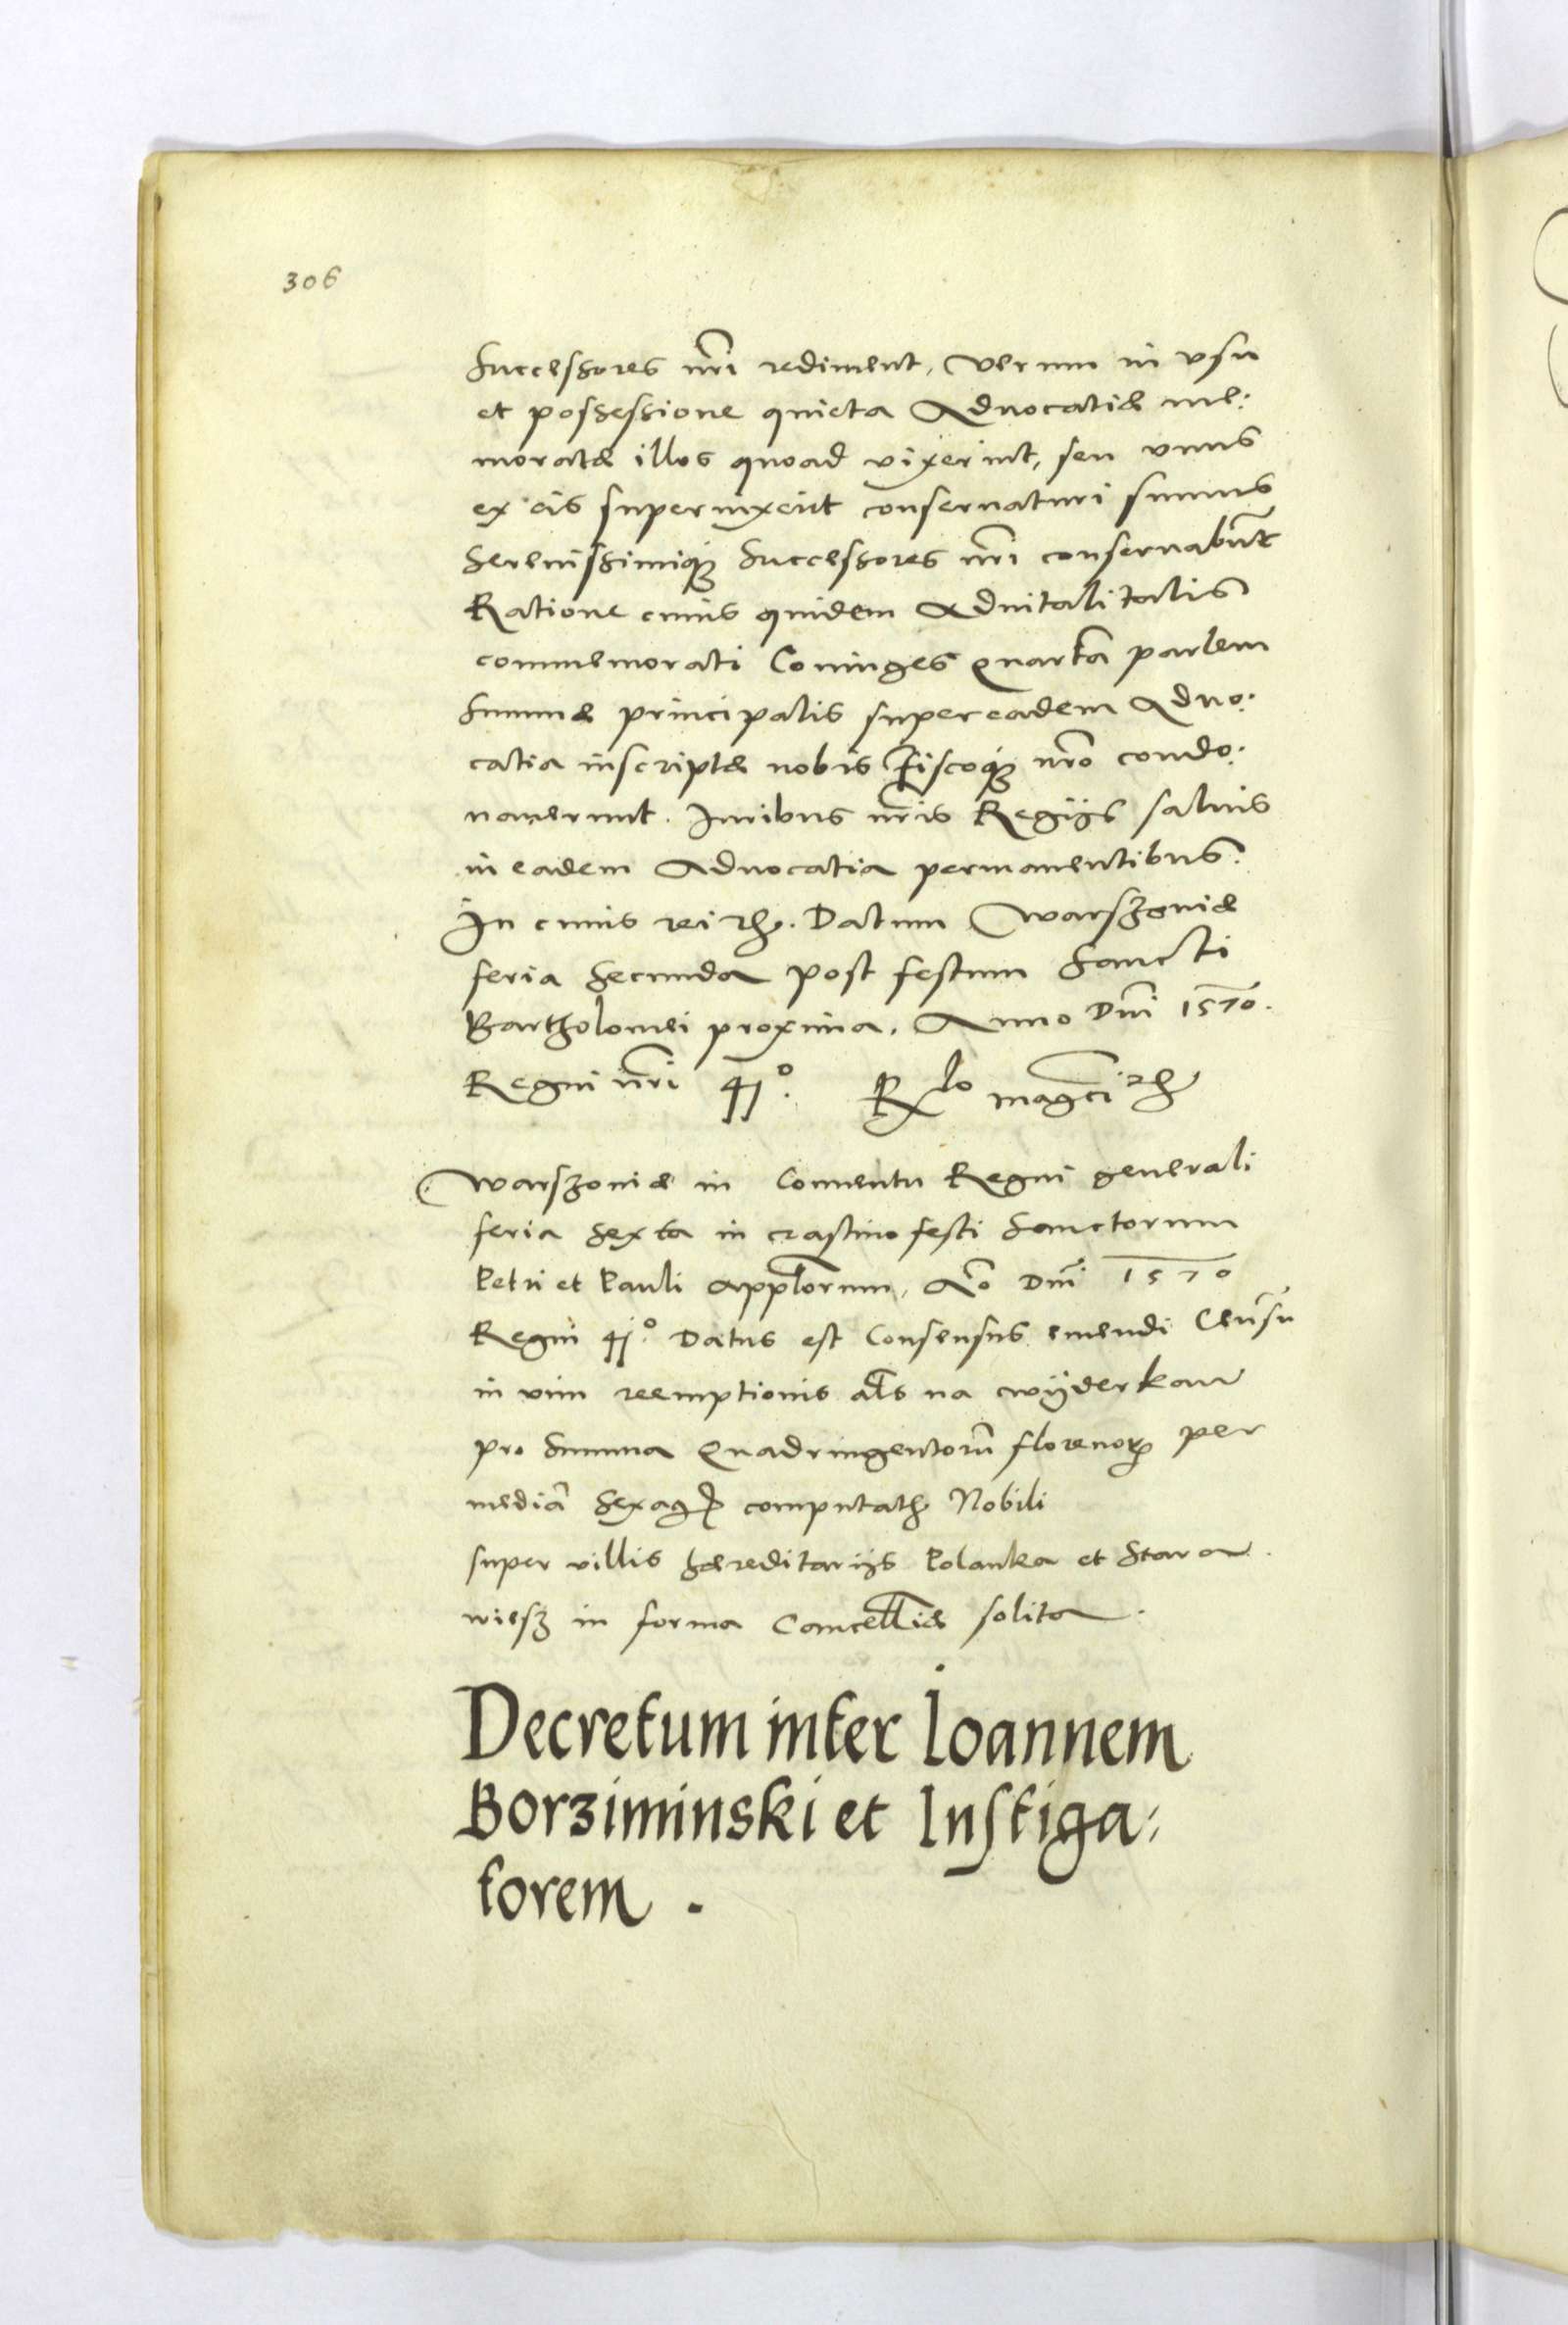 306
Successores nri rediment, verum in vsu
et possessione quieta Aduocatiæ me:
moratæ illos quoad vixerint, seu vnus
ex eis superuixerit conseruaturi sumus
Serenissimique Successores nri conseruabunt
Ratione cuius quidem Aduitalitatis
commemorati Coniuges Quartã partem
Summæ principalis super eadem Aduo:
catia inscriptæ nobis Fiscoque nro condo:
nauerunt. Iuribus nris Regijs saluis
in eadem Aduocatia permanentibus.
In cuius rei rh. Datum Warszoviæ
feria Secunda post festum Sancti
Bartholomei proxima. Anno Dni 1570.
Regni nri 41º. Rlo magci rh
Warszoviæ in Conuentu Regni generali
feria Sexta in crastino festi Sanctorum
Petri et Pauli Applorum, Ao Dni 1570
Regni 41º. Datus est Consensus emendi Censũ
in vim reemptionis als na wyderkaw
pro Summa Quadringentorũ florenorum per
mediã Sexag computatis Nobili
super villis hæreditarijs Polanka et Stara
wiesz in forma Cancellæ solita.
Decretum inter Ioannem
Borziminski et Instiga:
torem.